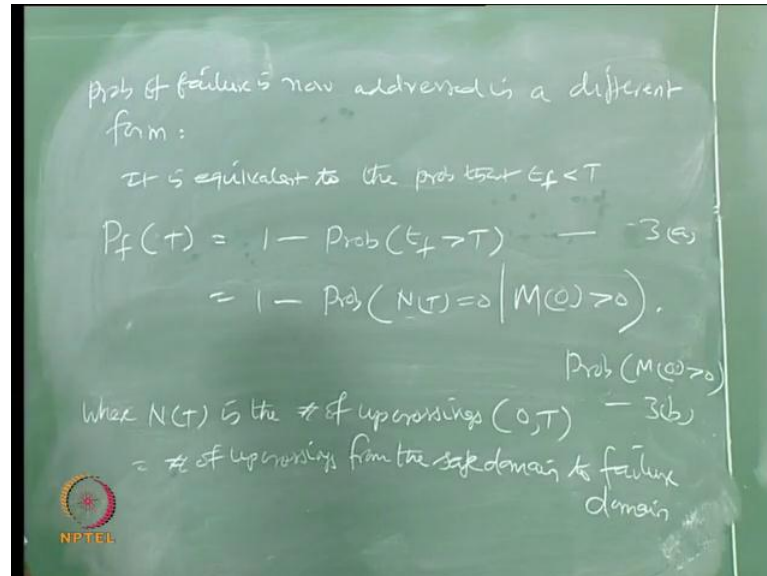 prob of failure is now addressed is a different
form:
It is equivalent to the prob that t_f < T
P_f(T) = 1 - Prob(t_f > T) — 3(a)
= 1 - Prob(N(T)=0 | M(0) > 0).
Prob(M(0)>0)
— 3(b)
where N(T) is the # of upcrossings (0,T)
= # of upcrossings from the safe domain to failure
domain
NPTEL